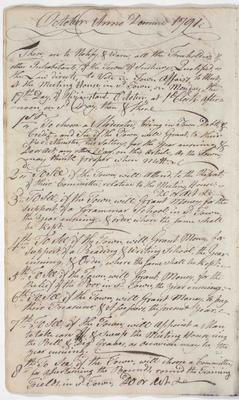 October Anno Domini 1791.
These are to Notify & Warn all the Freeholders &
other Inhabitants of the Town of Duxbury Qualified as
the Law directs to Vote in Town Affairs to Meet
at the Meeting House in sd Town on Monday the
17th Day of this Instant October at 1 o'Clock after
noon sd Day, then & there
1st To choose a Moderator, bring in their Debts &
Credits and See if the Town will Grant to their
Minister his Sallery for the year ensuing &
any other thing that the Town
may think proper when mett
2ly To See if the Town will attend to the Report
of their Committee relative to the Meeting House
3ly To See if the Town will Grant Money for the
support of a Grammar School in sd Town
the year ensuing, & order where the same shall
be kept.
4th To See if the Town will Grant Money for
support of a Reading & Writing School the year
ensuing, & order where the same shall be kept
5th To See if the Town will Grant Money for the
relief of the Poor in sd Town the year ensuing
6th To See if the Town will Grant Money to pay
their Treasurer for his service the present year
7th To See if the Town will appoint a man
to take care & sweep the Meeting House, ring
the Bell & dig Graves as occasion may be the
year ensuing
8th To See if the Town will chose a Committee
for ascertaining the Bounds round the Training
Field in sd Town Do or Act